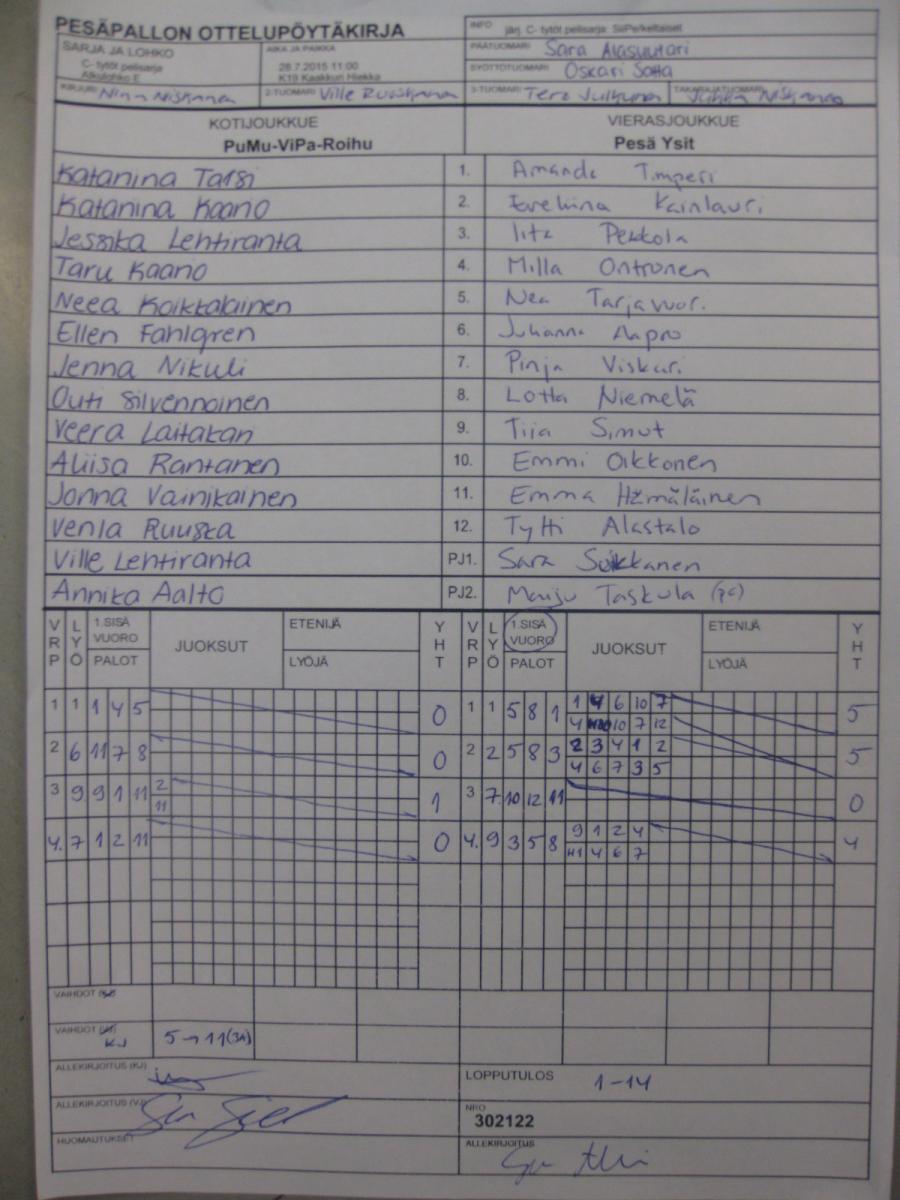 PESÄPALLON OTTELUPÖYTÄKIRJA
INFO järj. C- tytöt pelisarja: SiiPe/keltaiset
SARJA JA LOHKO
C- tytöt pelisarja
Alkulohko E
AIKA JA PAIKKA
28.7.2015 11:00
K19 Kaakkuri Hiekka
PÄÄTUOMARI Sara Alasuutari
SYÖTTÖTUOMARI Oskari Sotta
KIRJURI Nina Niskanen
2-TUOMARI Ville Ruuskanen
3-TUOMARI Tero Julkunen
TAKARAJATUOMARI Jukka Niskanen
KOTIJOUKKUE
PuMu-ViPa-Roihu
VIERASJOUKKUE
Pesä Ysit
Katariina Tarsi 1. Amanda Timperi
Katariina Kaario 2. Eveliina Kainlauri
Jessika Lehtiranta 3. Iita Pekkola
Taru Kaario 4. Milla Ontronen
Neea Koikkalainen 5. Nea Tarjavuori
Ellen Fahlgren 6. Julianna Aapro
Jenna Nikuli 7. Pinja Viskari
Outi Silvennoinen 8. Lotta Niemelä
Veera Laitakari 9. Tiia Simut
Aliisa Rantanen 10. Emmi Oikkonen
Jonna Vainikainen 11. Emma Hämäläinen
Venla Ruuska 12. Tytti Alastalo
Ville Lehtiranta PJ1. Sara Suikkanen
Annika Aalto PJ2. Maiju Taskula (pc)
VRP LYÖ 1.SISÄ VUORO PALOT JUOKSUT ETENIJÄ LYÖJÄ YHT VRP LYÖ 1.SISÄ VUORO PALOT JUOKSUT ETENIJÄ LYÖJÄ YHT
1 1 1 4 5 0 1 1 5 8 1 1 4 6 10 7 5
4 10 7 12
2 6 11 7 8 0 2 2 5 8 3 2 3 4 1 2 5
4 6 7 3 5
3 9 9 1 11 2 1 3 7 10 12 11 0
11
4. 7 1 2 11 0 4. 9 3 5 8 9 1 2 4 4
H1 4 6 7
VAIHDOT
VAIHDOT KJ 5→11(3A)
ALLEKIRJOITUS (KJ)
LOPPUTULOS 1-14
ALLEKIRJOITUS (VJ)
NRO
302122
HUOMAUTUKSET
ALLEKIRJOITUS